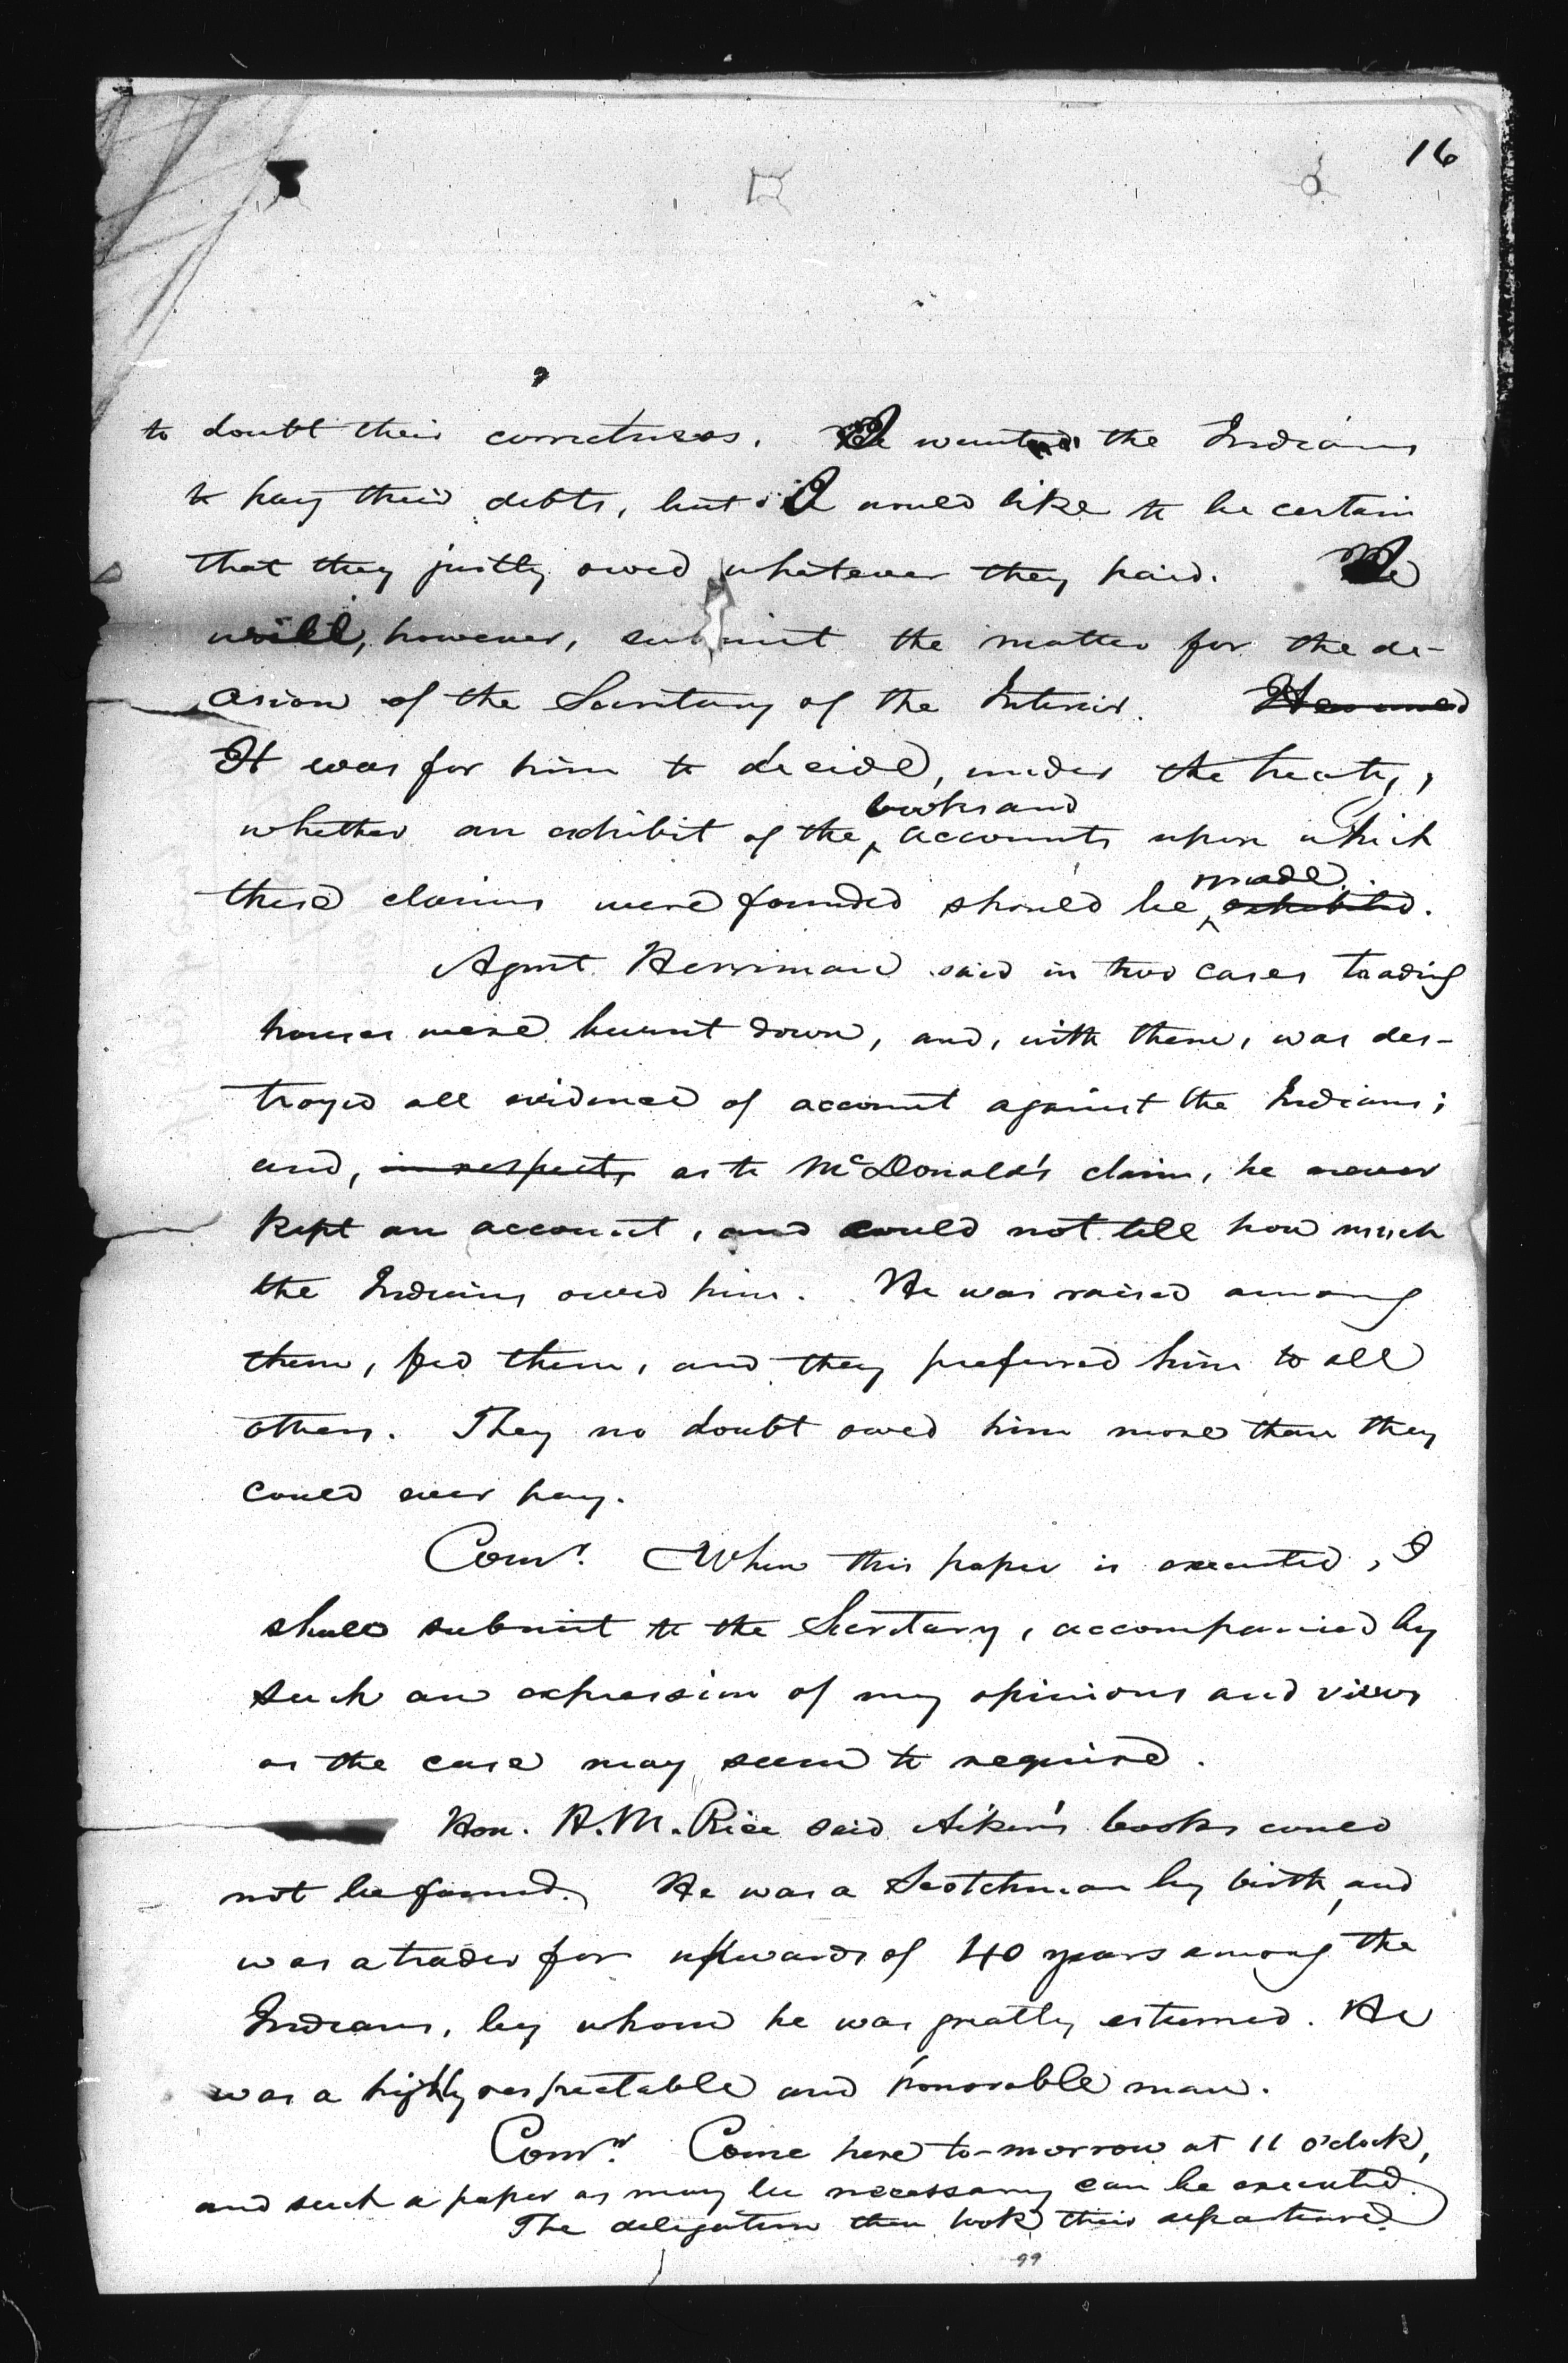 16
to doubt their correctness. I want the Indians
to pay their debts, but I would like to be certain
that they justly owed whatever they paid. I
will, however, submit the matter for the de-
cision of the Secretary of the Interior.
It was for him to decide, under the treaty,
whether an exhibit of the books and accounts upon which
these claims were founded should be made exhibited.
Agent Herriman said in two cases trading
houses were burnt down, and, with them, was des-
troyed all evidence of account against the Indians;
and, in respect, as to McDonald's claim, he never
kept an account, and could not tell how much
the Indians owed him. He was raised among
them, fed them, and they preferred him to all
others. They no doubt owed him more than they
could ever pay.
Comr. When this paper is executed, I
shall submit to the Secretary, accompanied by
such an expression of my opinions and views
as the case may seem to require.
Hon. H. M. Rice said Aiken's books could
not be found. He was a Scotchman by birth, and
was a trader for upwards of 40 years among the
Indians, by whom he was greatly esteemed. He
was a highly respectable and honorable man.
Comr. Come here to-morrow at 11 o'clock,
and such a paper as may be necessary can be executed.
The delegation then took their departure.
99